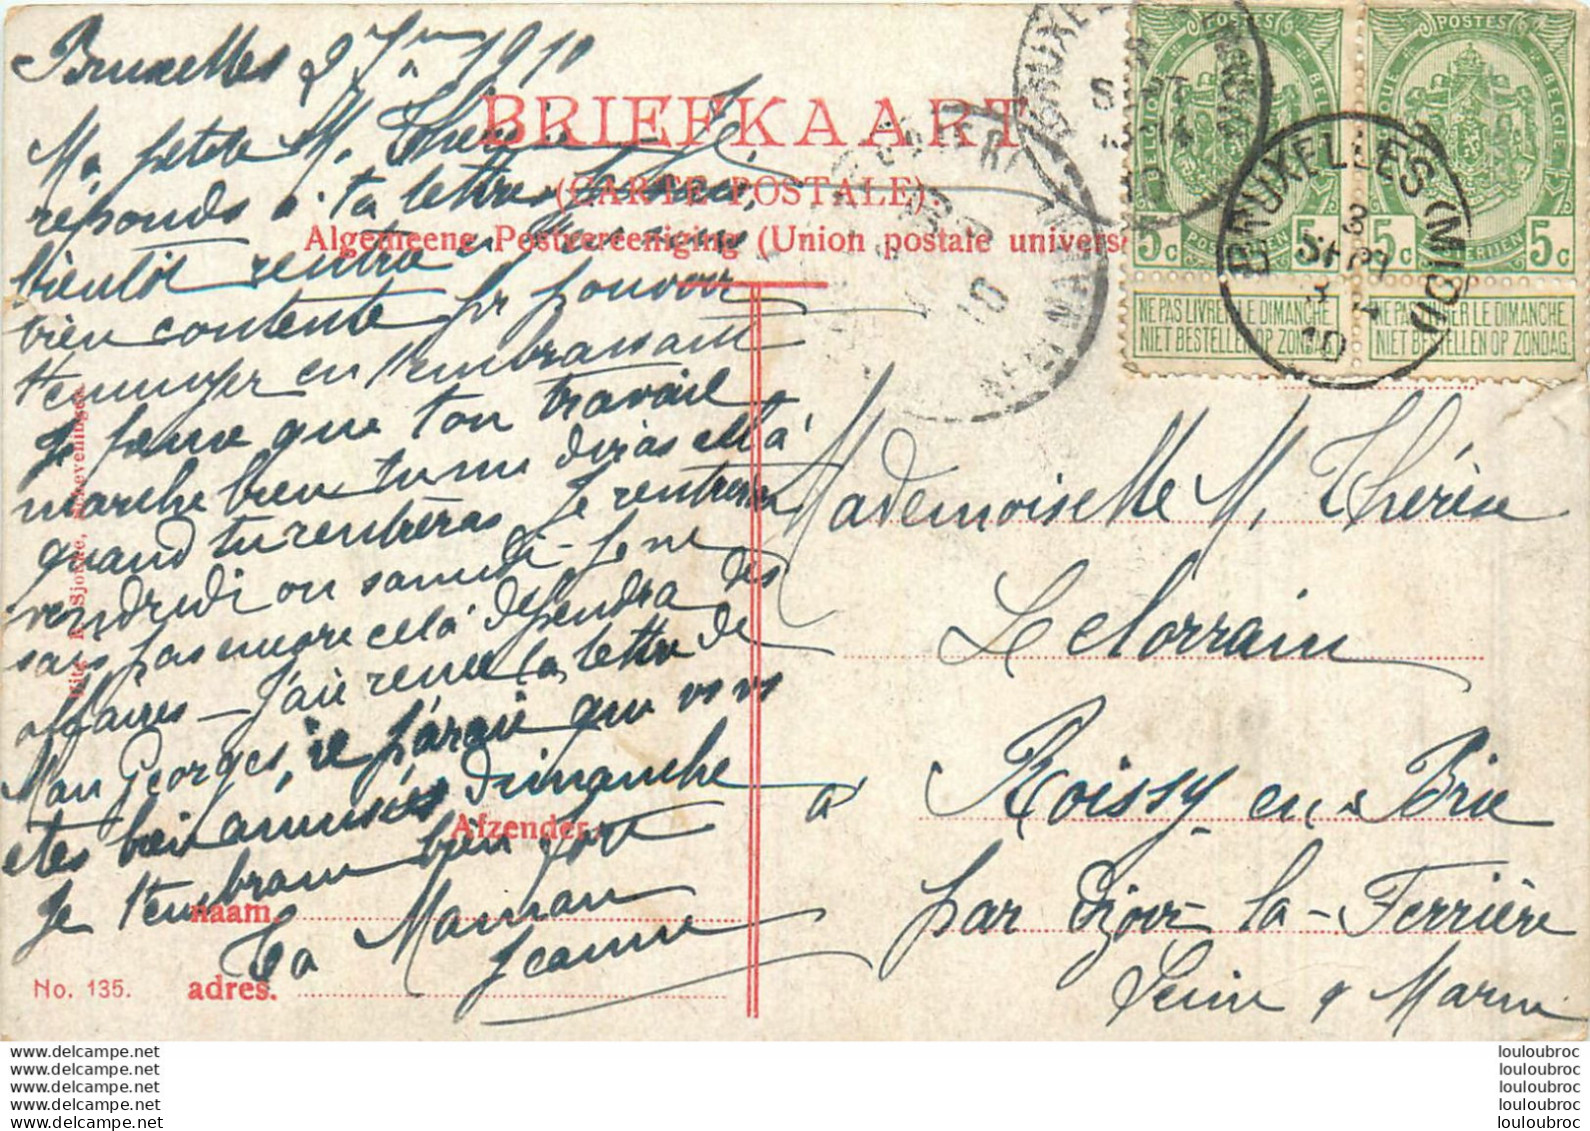 Bruxelles 2 7bre 1910
Ma petite M. Thérèse - Je
réponds à ta lettre,
bientôt rentrer
bien contente pr pouvoir
t'ennuyer en t'embrassant
je pense que ton travail
marche bien tu me diras cela
quand tu rentreras. Je rentrerai
vendredi ou samedi - Je ne
sais pas encore cela dépendra des
affaires - J'ai reçu la lettre de
Mon Georges, il paraît que vs vs
êtes bien amusés dimanche
Je t'embrasse bien fort
Ta Maman
Jeanne
BRIEFKAART
(CARTE POSTALE).
Algemeene Postvereeniging (Union postale univers
Afzender.
naam.
adres.
No. 135.
POSTES
BELGIQUE BELGIE
POSTERIJEN
5c 5c
NE PAS LIVRER LE DIMANCHE.
NIET BESTELLEN OP ZONDAG.
POSTES
BELGIQUE BELGIE
POSTERIJEN
5c 5c
NE PAS LIVRER LE DIMANCHE.
NIET BESTELLEN OP ZONDAG.
BRUXELLES (MIDI)
3
SEPT
10
Mademoiselle M. Thérèse
Lelorrain
à Roissy en Brie
par Ozoir-la-Ferrière
Seine & Marne
www.delcampe.net
www.delcampe.net
www.delcampe.net
www.delcampe.net
www.delcampe.net
louloubroc
louloubroc
louloubroc
louloubroc
louloubroc